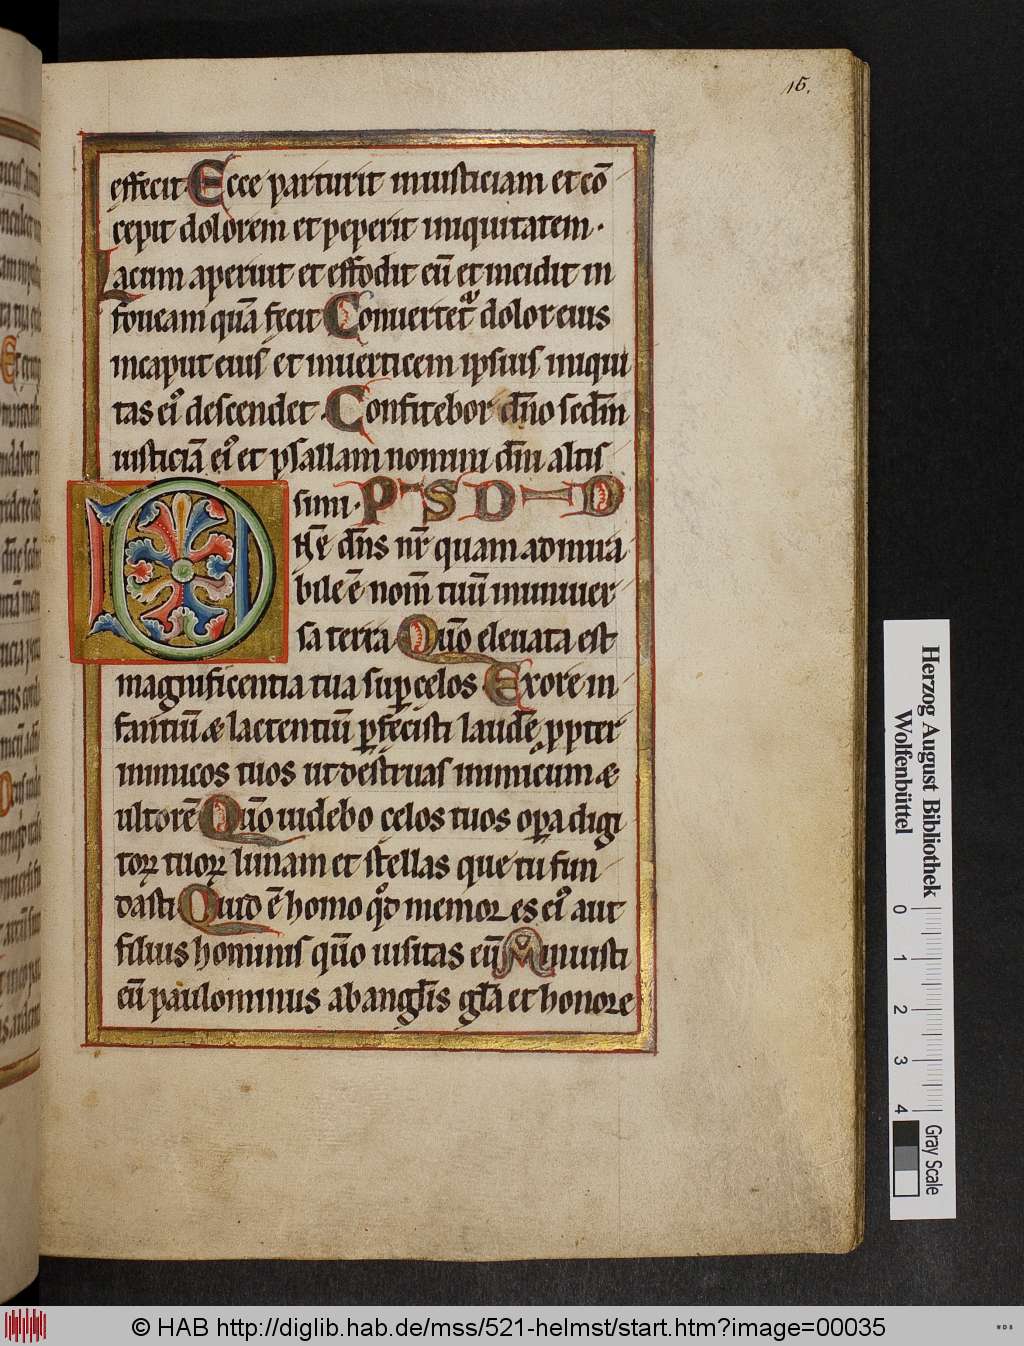 15.
effecit· Ecce parturit iniusticiam et cō
cepit dolorem et peperit iniquitatem·
Lacum aperuit et effodit eū et incidit in
foueam quā fecit Conuertet᷑ dolor eius
incaput eius et inuerticem ipsius iniqui
tas eiꝰ descendet· Confitebor dn̄o sedm̄
iusticiā eiꝰ et psallam nomini dn̄i altis
simi· PS D D
Ne dn̄s nr̄ quam admira
bile ē nom̄ tuū inuniuer
sa terra Qūo eleuata est
magnificentia tua suꝑ celos Exore in
fantiū & lactentiū ꝑfecisti laudē ꝓpter
inimicos tuos ut destruas inimicum &
ultorē Qūo uidebo celos tuos oꝑa digi
toꝝ tuoꝝ lunam et stellas que tu fun
dasti Quid ē homo qͦd memor es eiꝰ aut
filius hominis qūo uisitas eū Minuisti
eū paulominus ab angl̄is gl̄a et honore
Herzog August Bibliothek
Wolfenbüttel
0 1 2 3 4
Gray Scale
© HAB http://diglib.hab.de/mss/521-helmst/start.htm?image=00035